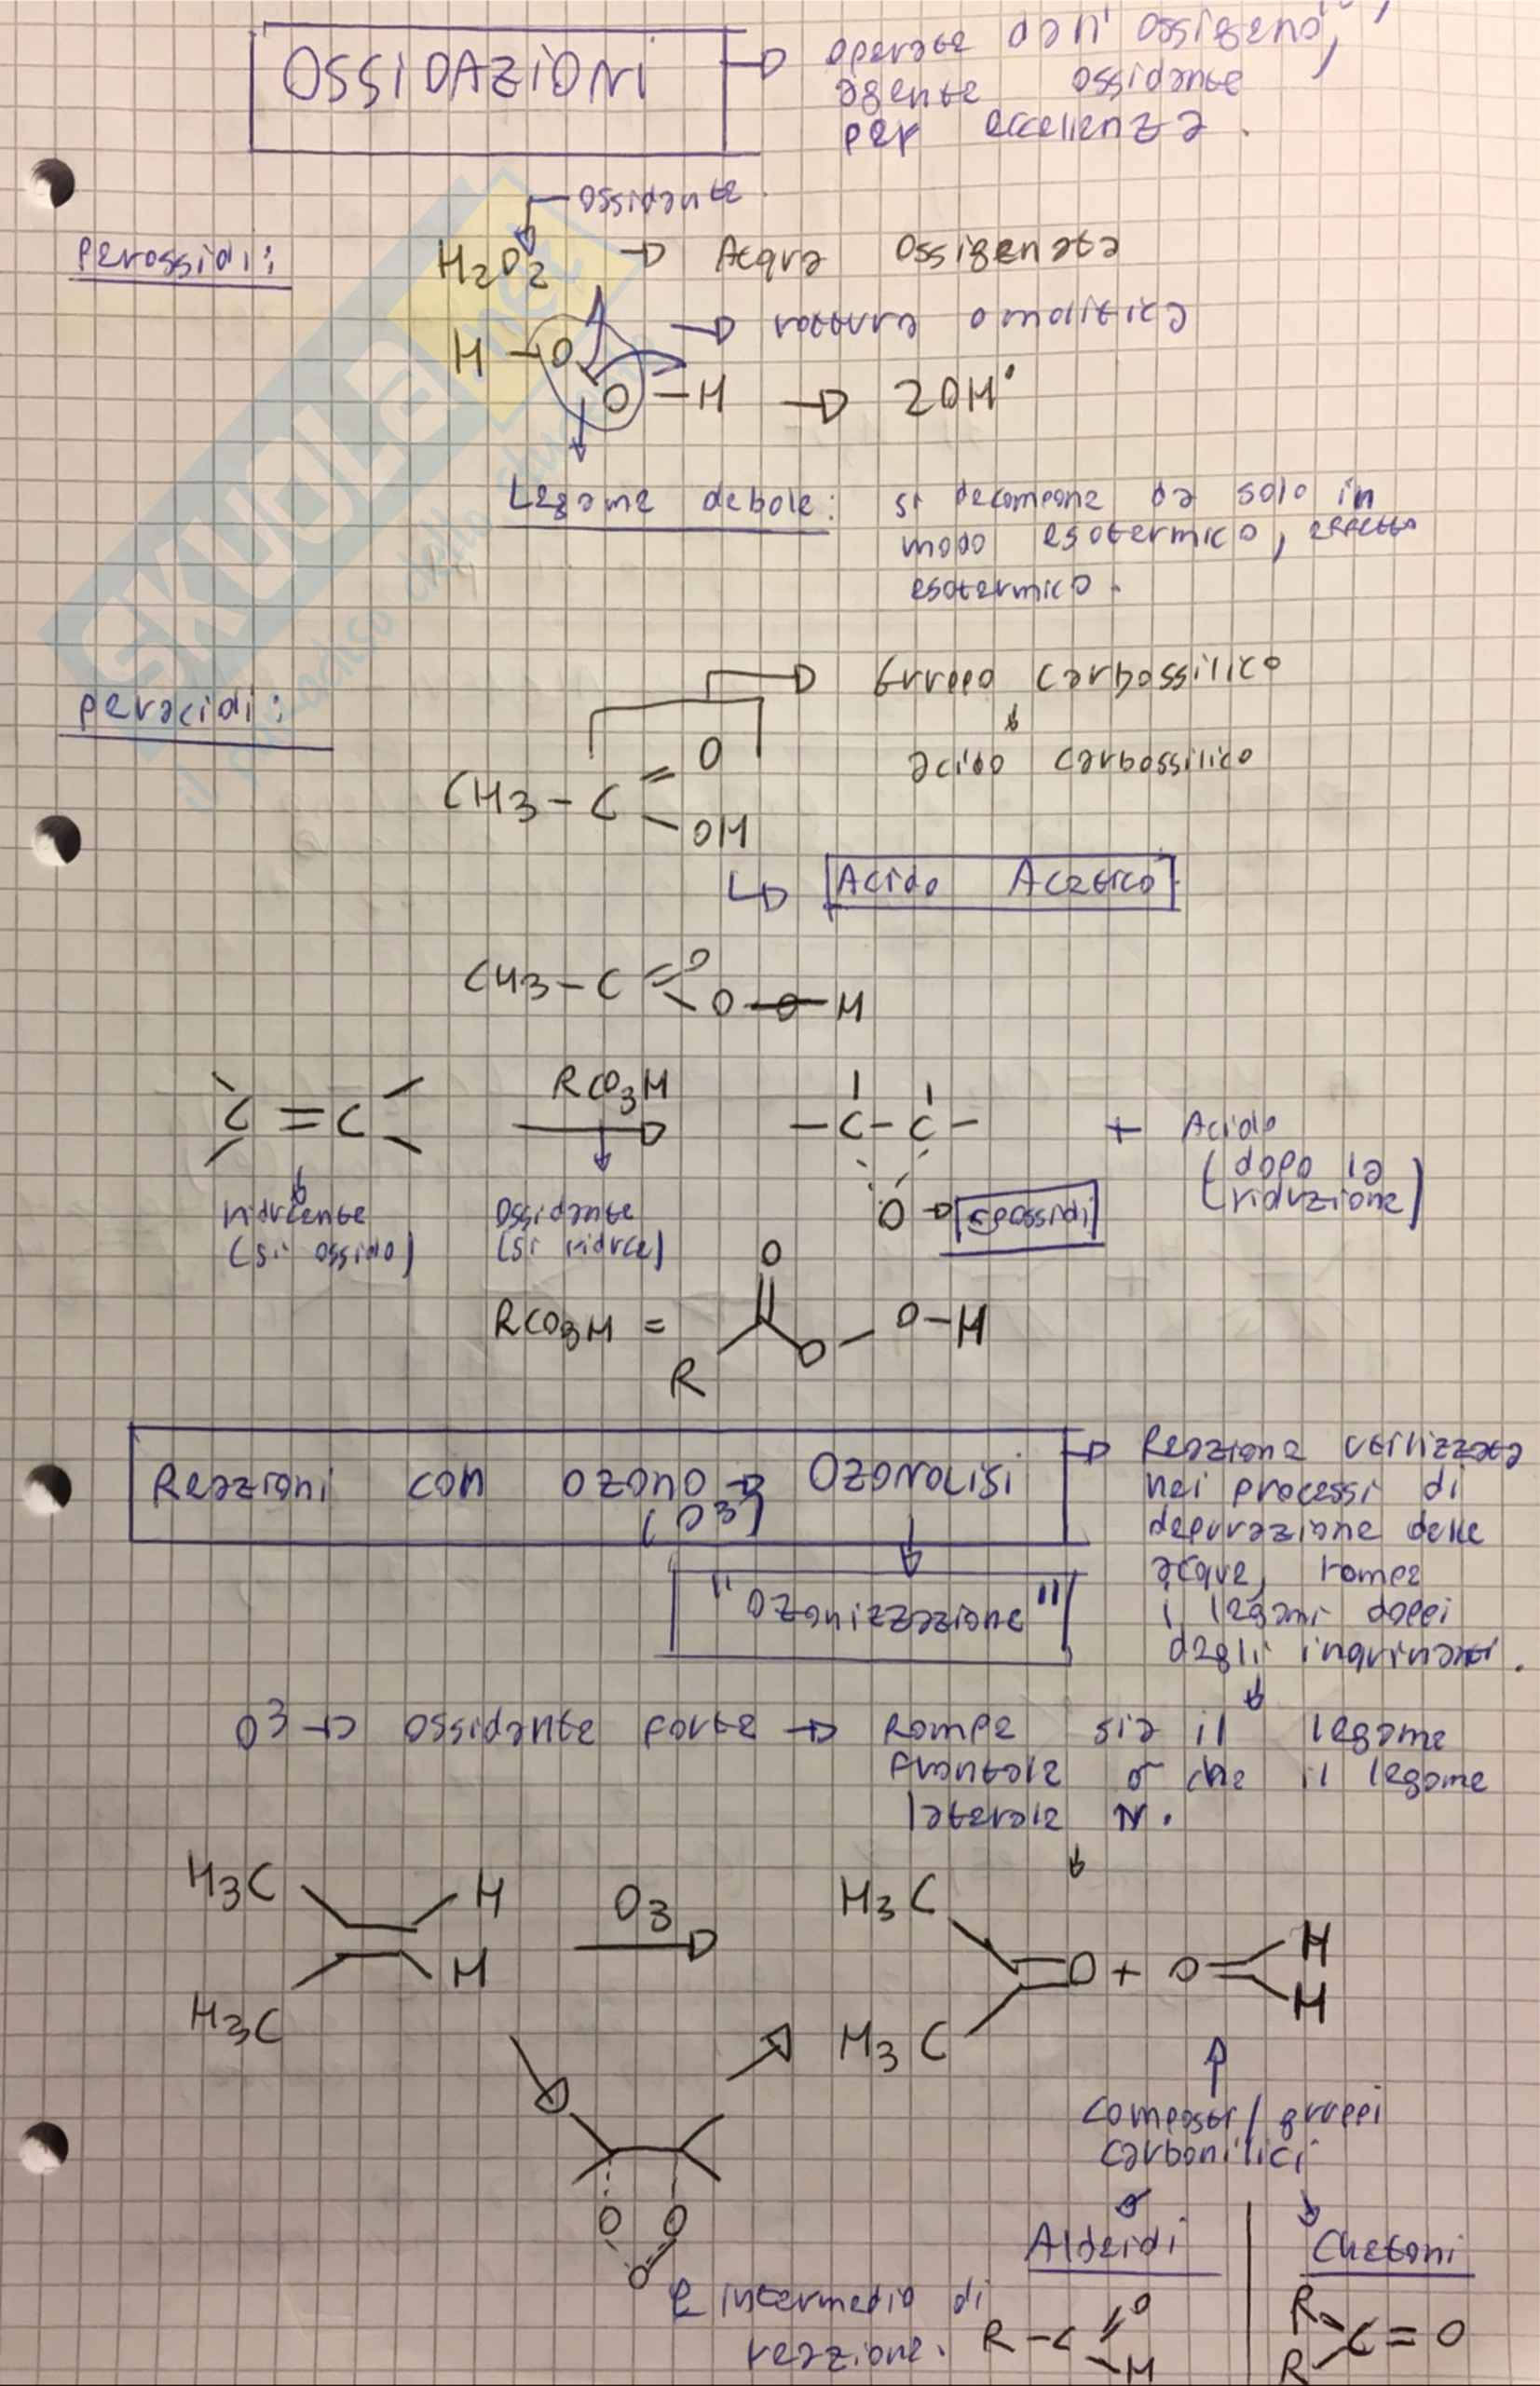 OSSIDAZIONI → operate dall'ossigeno,
agente ossidante
per eccellenza.
ossidante.
Perossidi:
H₂O₂ → Acqua Ossigenata
→ rottura omolitica
H-O
O-H → 2OH•
Legame debole: si decompone da solo in
modo esotermico, effetto
esotermico.
Peracidi:
→ Gruppo carbossilico
↓
acido carbossilico
CH3-C=O
-OH
↳ Acido Acetico
CH3-C=O
O-O-H
C=C
RCO₃H
→
-C-C-
O → Epossidi
+ Acido
(dopo la
riduzione)
riducente
(si ossida)
Ossidante
(si riduce)
RCO₃H =
O
R
O
O-H
Reazioni con ozono → Ozonolisi
(O3)
"Ozonizzazione"
→ Reazione utilizzata
nei processi di
depurazione delle
acque, rompe
i legami doppi
degli inquinanti.
O3 → ossidante forte → Rompe sia il legame
frontale σ che il legame
laterale π.
H₃C
H
H₃C
H
O₃
→
H₃C
H₃C
=O + O=
H
H
O O
O
↳ intermedio di
reazione.
composti/gruppi
carbonilici
Aldeidi
R-C=O
-H
Chetoni
R
R
C=O
SKUOLA.net
il paradiso dello studente